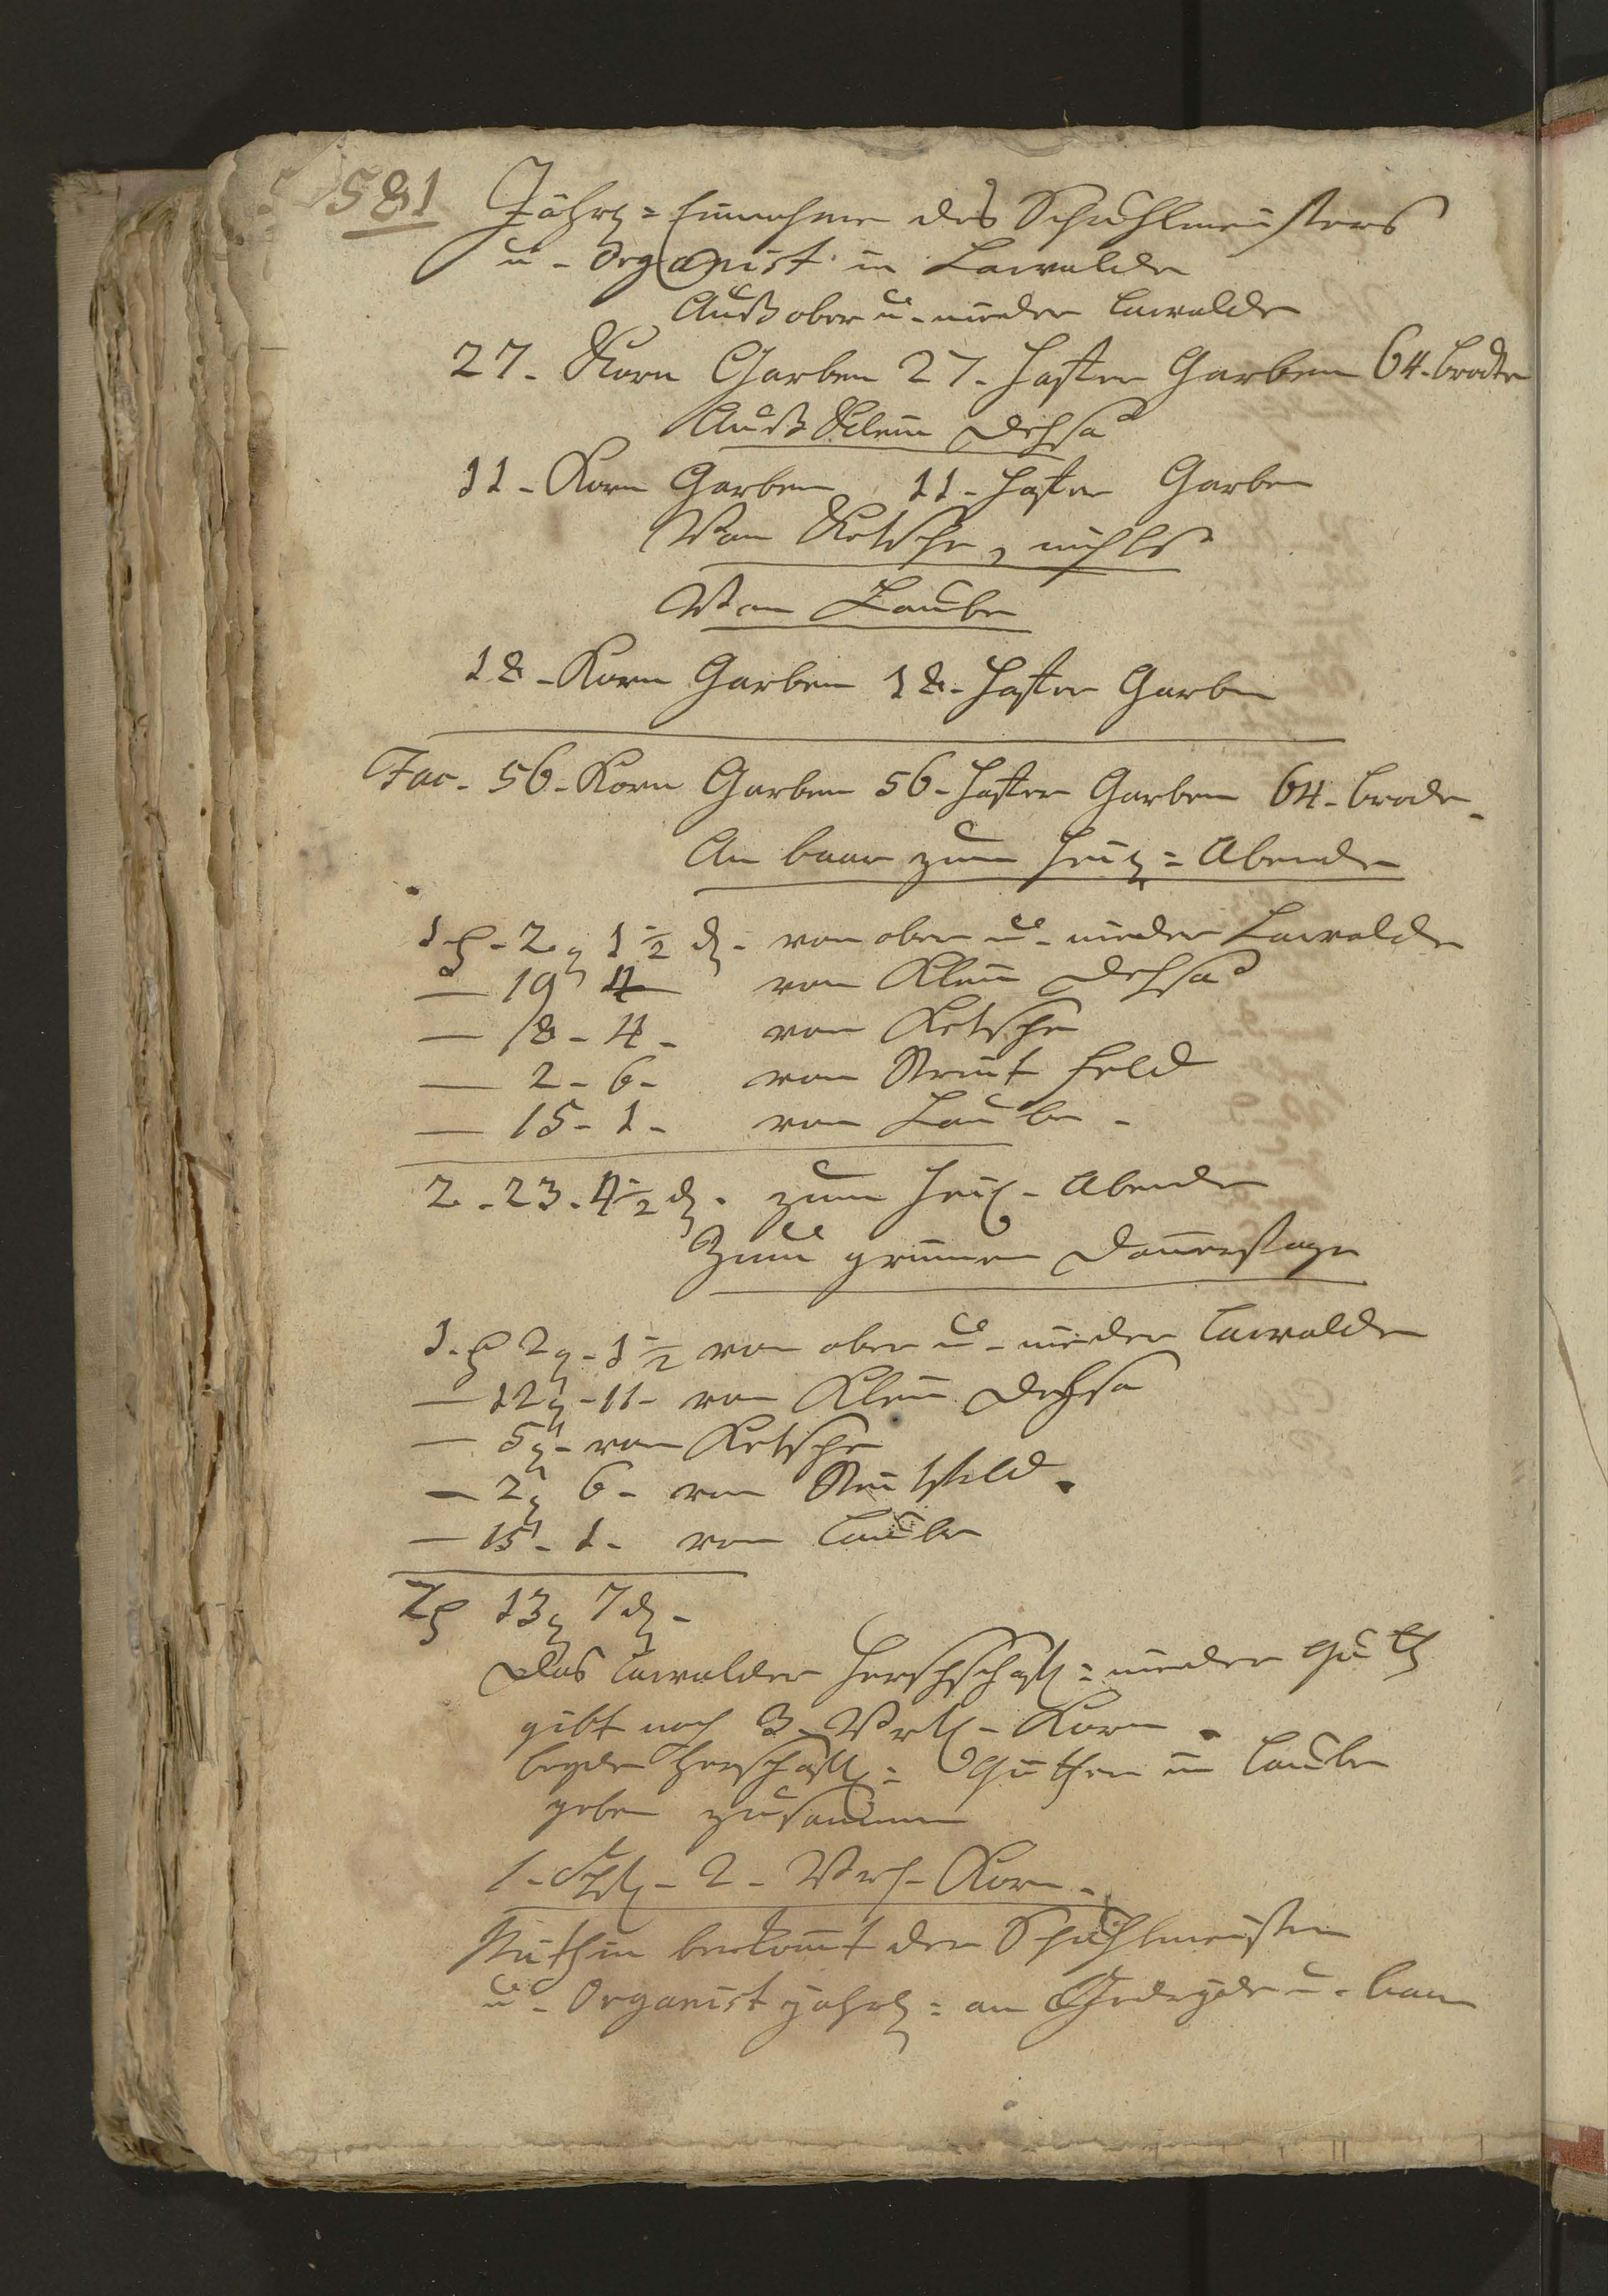 581 Jährl= Einnahme des Schuhlmeisters
u - Organist in Lawalde
Auß ober u - nieder Lawalde
27 - Korn Garben 27 - Hafer Garben 64 - brodte
Auß Klein Dehsa
11 - Korn Garben 11 - Hafer Garben
Von Kötsche, nichts
Von Lauba
18 - Korn Garben 18 - Hafer Garben
Fac - 56 - Korn Garben 56 - Hafer Garben 64 - brode -
An baar zum Heil= Abende
1 2 1½ d - von ober u - nieder Lawalde
— 19 4 von Klein Dehsa
— 18 - 4 - von Kötsche
— 2 - 6 - von Streit Feld
— 15 - 1 - von Lauba -
2 - 23 - 4½ d - zum Heil - Abende
Zum grünen Donnerstage
1 - 2 - 1½ von ober u - nieder Lawalde
— 12 - 11 - von Klein Dehsa
— 5 - von Kötsche
— 2 6 - von Streitfeld -
— 15 - 1 - von Lauba
2 13 7 d -
Das Lawalder Herschschaftl= nieder Guth
gibt noch 3 - Vrtl - Korn -
beyde Herschaftl= Güther in Lauba
geben zusammen
1 - Schfl - 2 - Vrtl - Korn -
Mithin bekomt der Schuhlmeister
u - Organist jährl= an Gedreyde u - baar